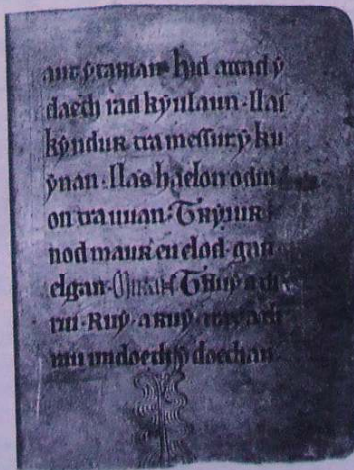 tarian hid attad ẏ
daeth rad kẏulaun. llas
kẏndur tra messur ẏ ku
ẏnan. llas haelon o din
on tra uuan. Trẏuir
nod maur eu clod gan
elgan. Truẏ
rui. Ruẏ. a ruẏ.
doethan.